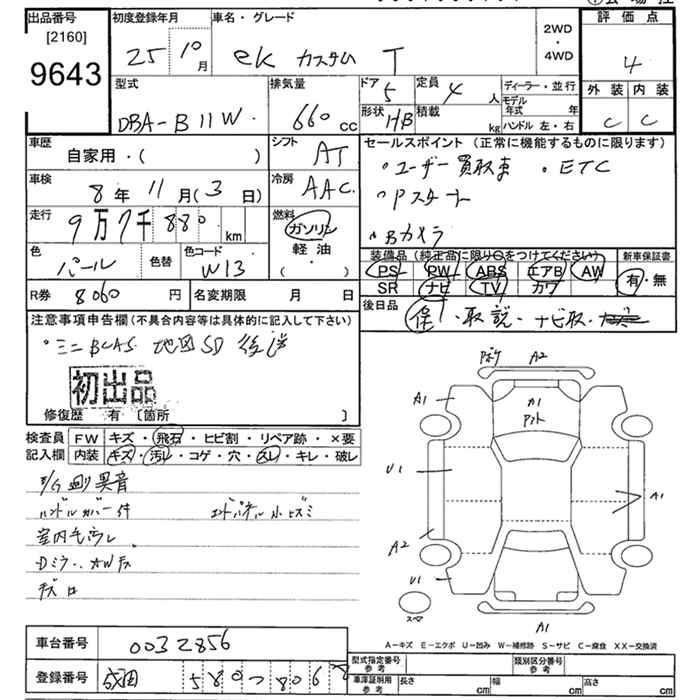 出品番号
[2160]
9643
初度登録年月
25 10月
車名・グレード
ek カスタム T
2WD
・
4WD
評価点
4
外装 内装
C C
型式
DBA-B11W
排気量
660 cc
ドア
5
定員
4 人
形状
HB
積載
kg
ディーラー・並行
モデル年式 年
ハンドル 左・右
車歴
自家用・( )
シフト
AT
セールスポイント (正常に機能するものに限ります)
ユーザー買取車 ・ETC
Pスタート
Bカメラ
車検
8年11月(3日)
冷房
AAC
走行
9万7千880 km
燃料
ガソリン
軽油
( )
色
パール
色替
色コード
W13
装備品 (純正品に限り○をつけてください)
PS PW ABS エアB AW
SR ナビ TV カワ
新車保証書
有・無
R券 8060 円
名変期限 月 日
後日品
保・取説・ナビ取・
注意事項申告欄 (不具合内容等は具体的に記入して下さい)
・ミニBCAS 地図SD 後送
初出品
修復歴 有 〔箇所 〕
検査員記入欄
FW キズ・飛石・ヒビ割・リペア跡・×要
内装 キズ・汚レ・コゲ・穴・スレ・キレ・破レ
E/G 異音
ハンドルカバー付
エンドパネル小キズミ
室内毛汚レ
Dミラー、AWキズ
Pポケ A2
A1
A1
U1
A1
A2
U1
スペア
A1
A-キズ E-エクボ U-凹み W-補修跡 S-サビ C-腐食 XX-交換済
車台番号 0032856
登録番号 成田 580 8068
型式指定番号 参考
類別区分番号 参考
車庫証明用 参考
長さ cm
幅 cm
高さ cm